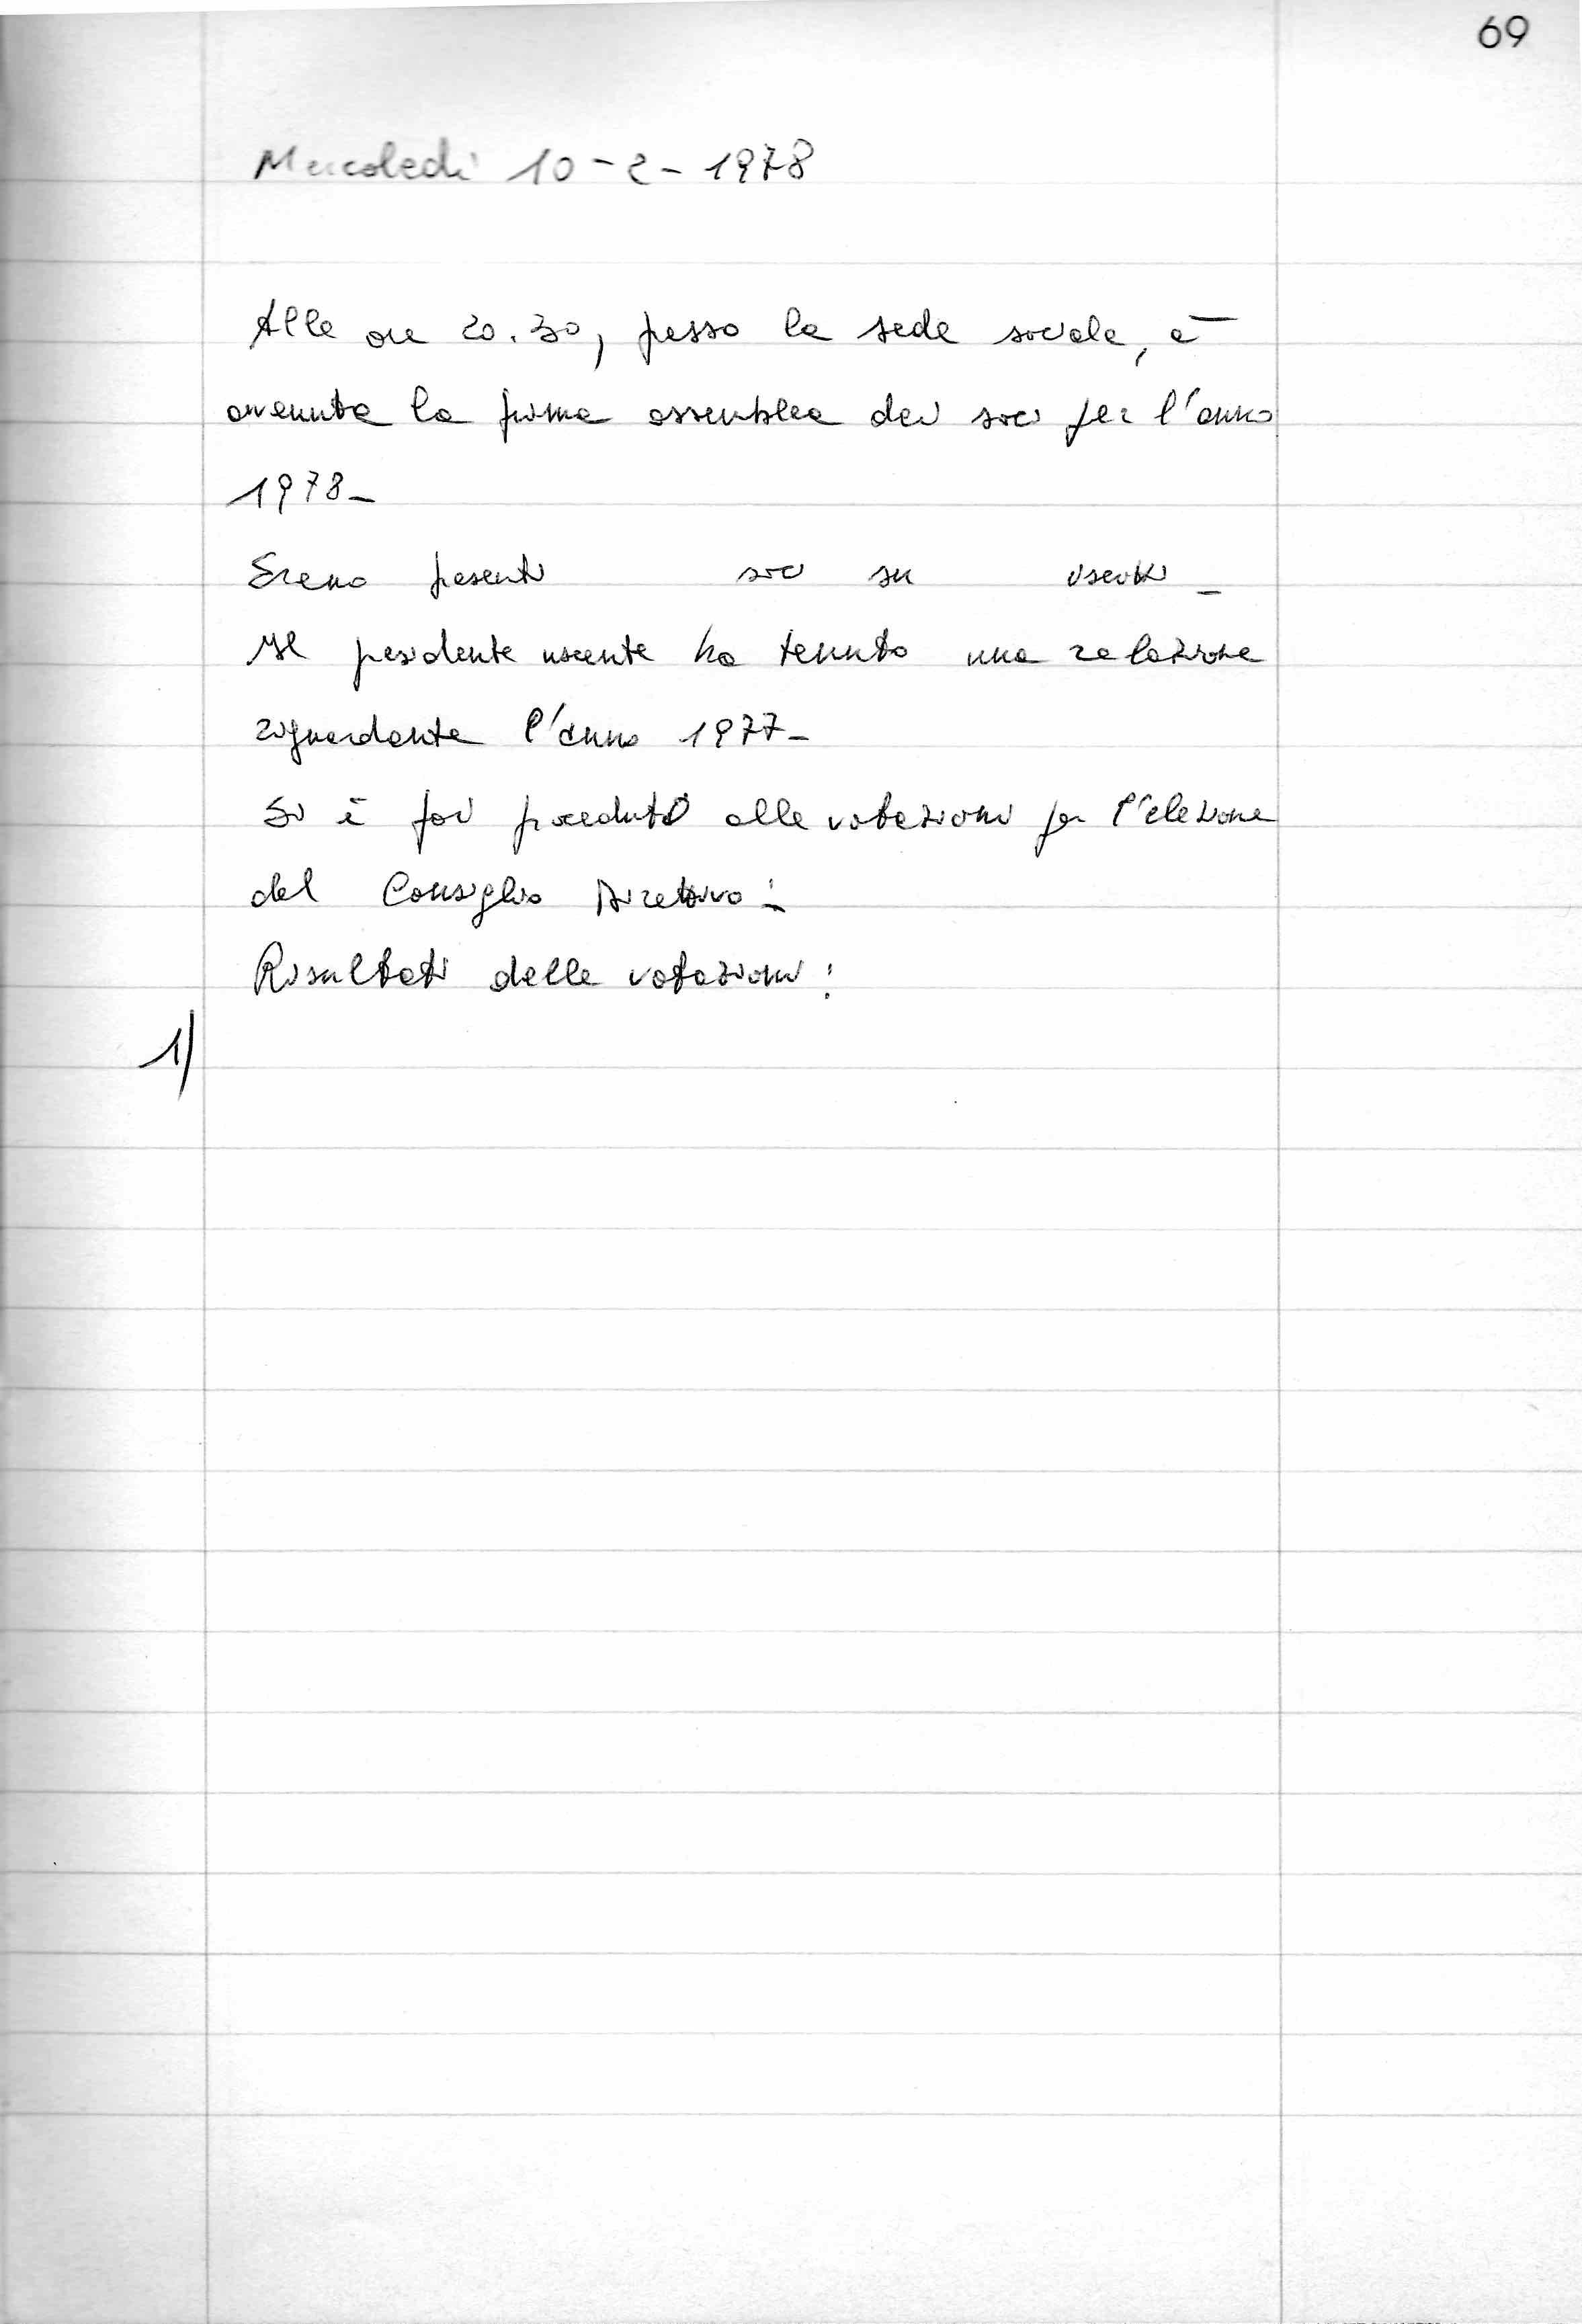 69
Mercoledì 10-2-1978
Alle ore 20.30, presso la sede sociale, è
avvenuta la prima assemblea dei soci per l'anno
1978-
Erano presenti soci su iscritti -
Il presidente uscente ha tenuto una relazione
riguardante l'anno 1977-
Si è poi proceduto alle votazioni per l'elezione
del Consiglio Direttivo:
Risultati delle votazioni:
1)